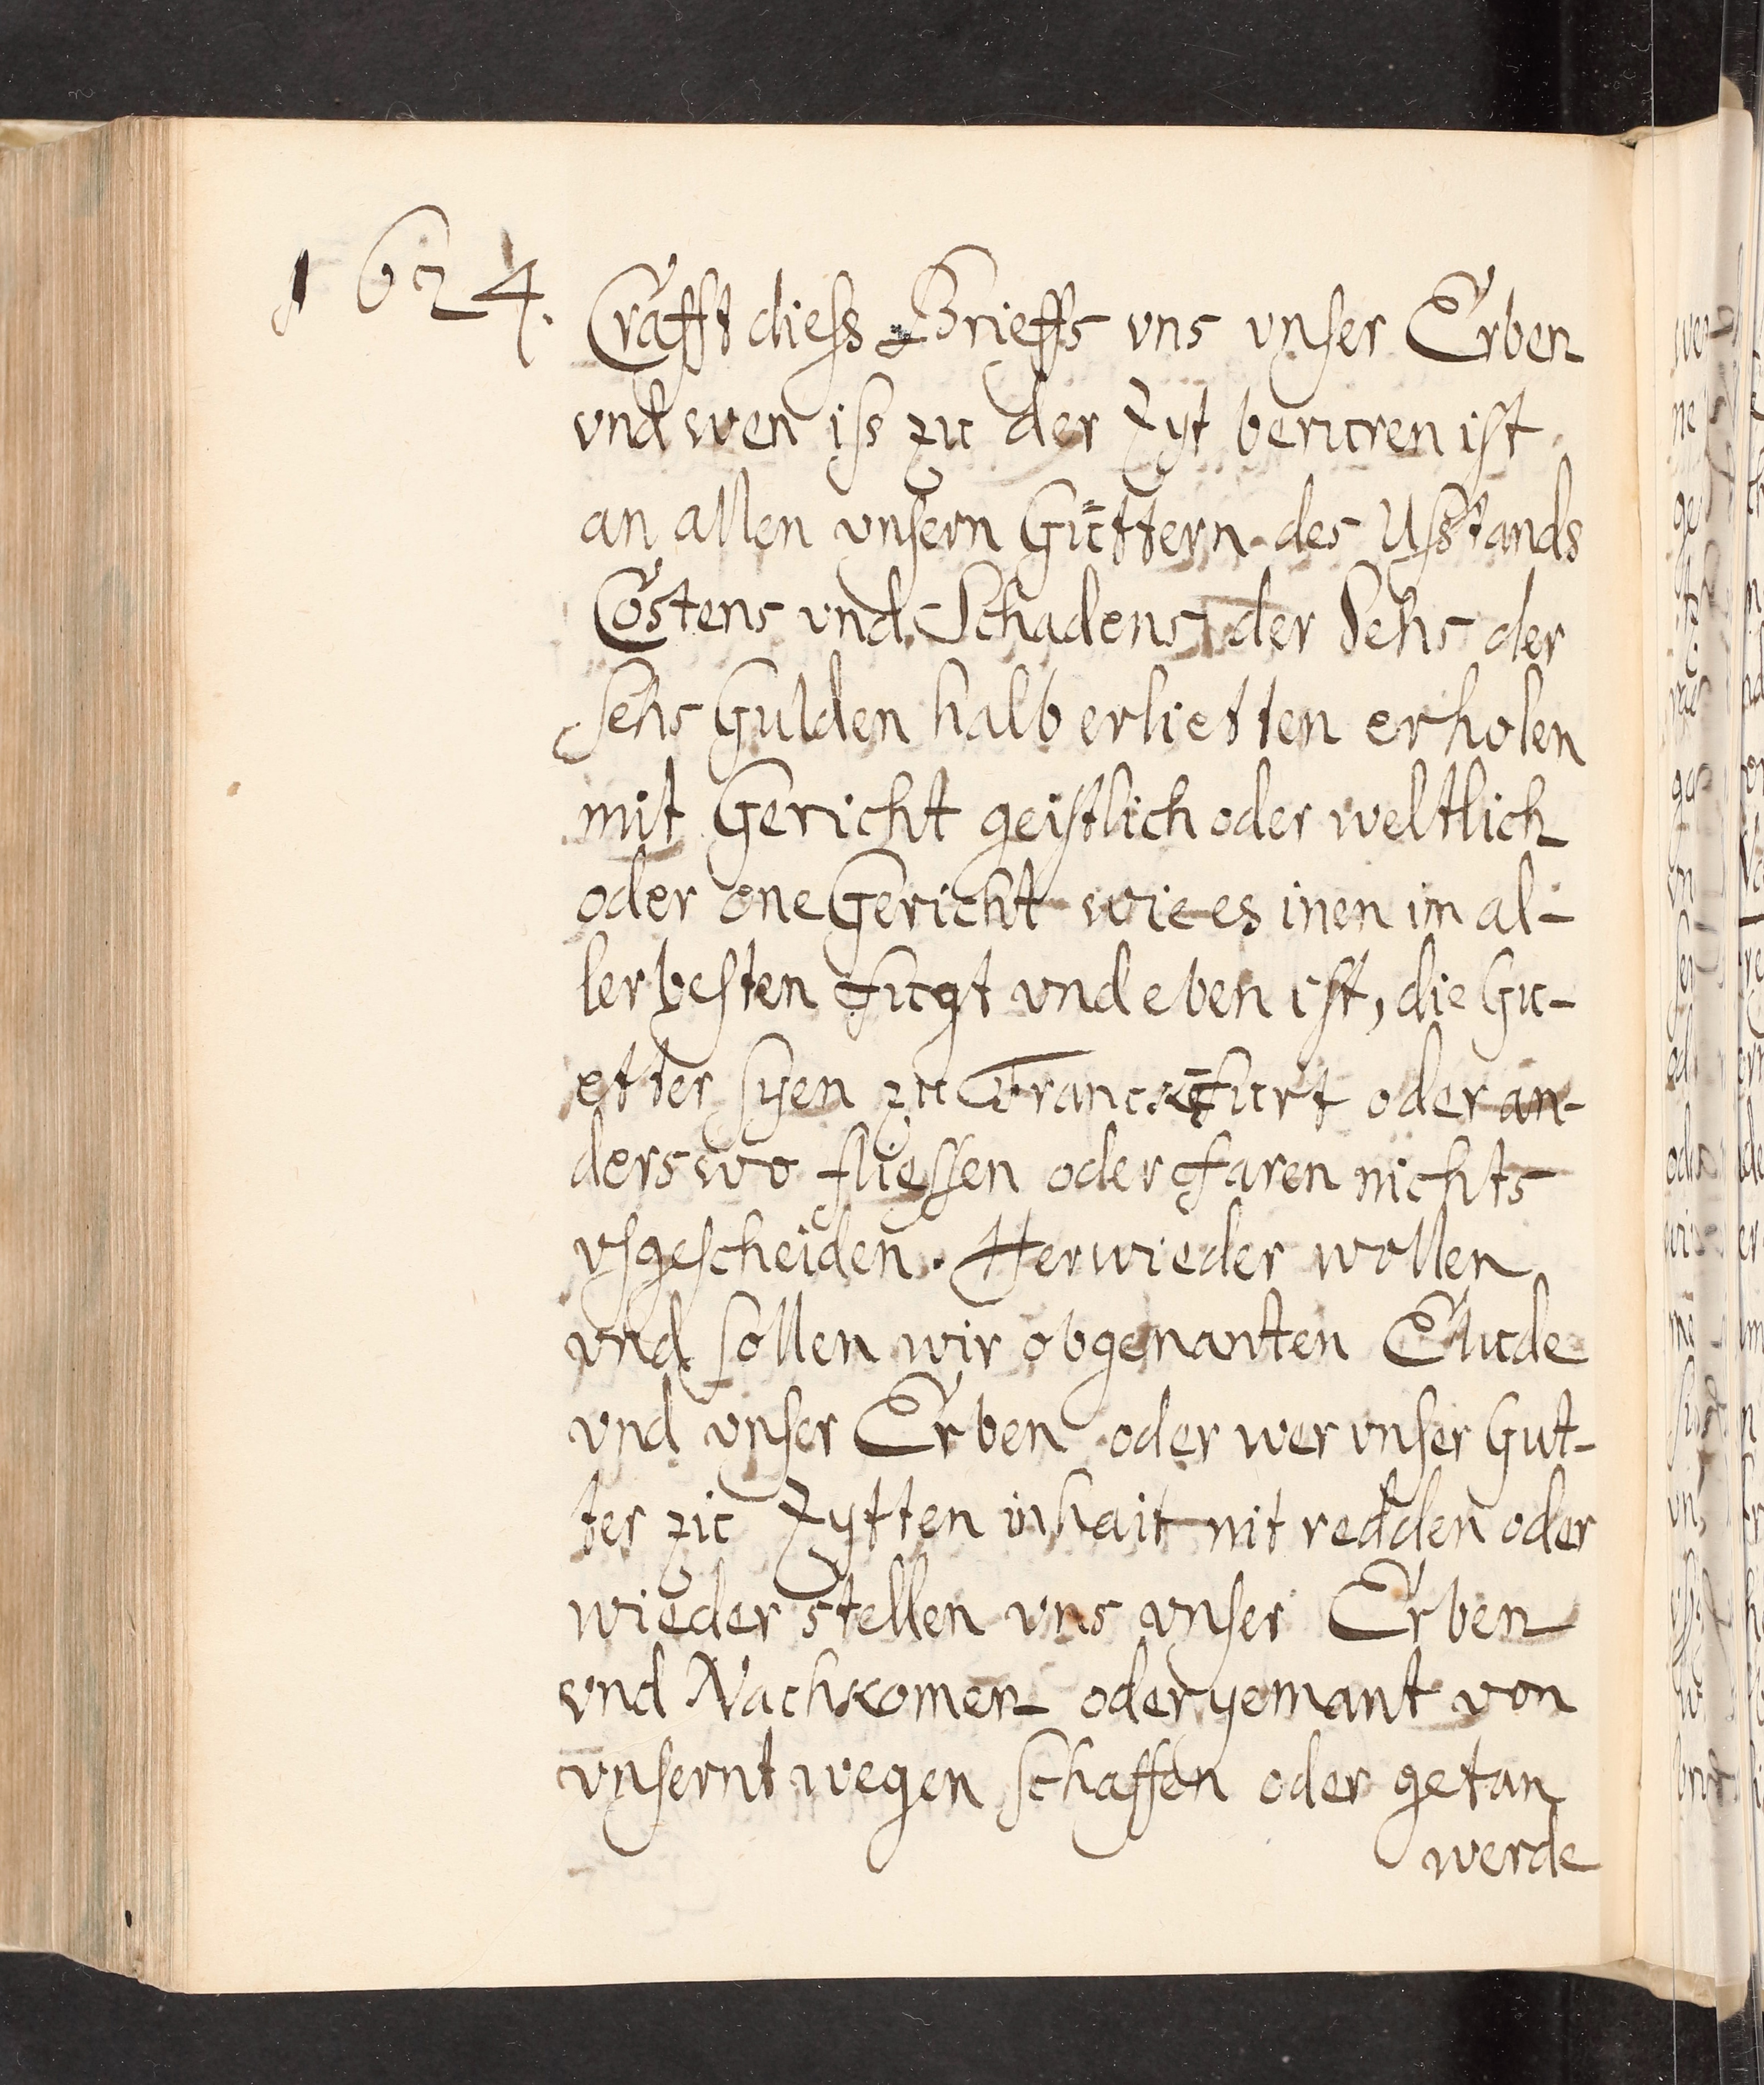 1624.
Crafft diess Brieffs vns vnser Erben
vnd wen iss zu der Zyt beruren ist
an allen vnsern Güttern des Usstands
Costens vnd Schadens der Sehs der
Sehs Gulden halb erlietten erholen
mit Gericht geistlich oder weltlich
oder one Gericht wie es inen im al-
lerbesten fugt vnd eben ist, die Gu-
etter syen zu Franckfurt oder an-
derswo fliessen oder faren nichts
vsgescheiden. Herwieder wollen
vnd sollen wir obgenanten Elude
vnd vnser Erben oder wer vnser Gut-
ter zu Zytten inhait nit redden oder
wieder stellen vns vnser Erben
vnd Nachkomen oder yemant von
vnsernt wegen schaffen oder getan
werde